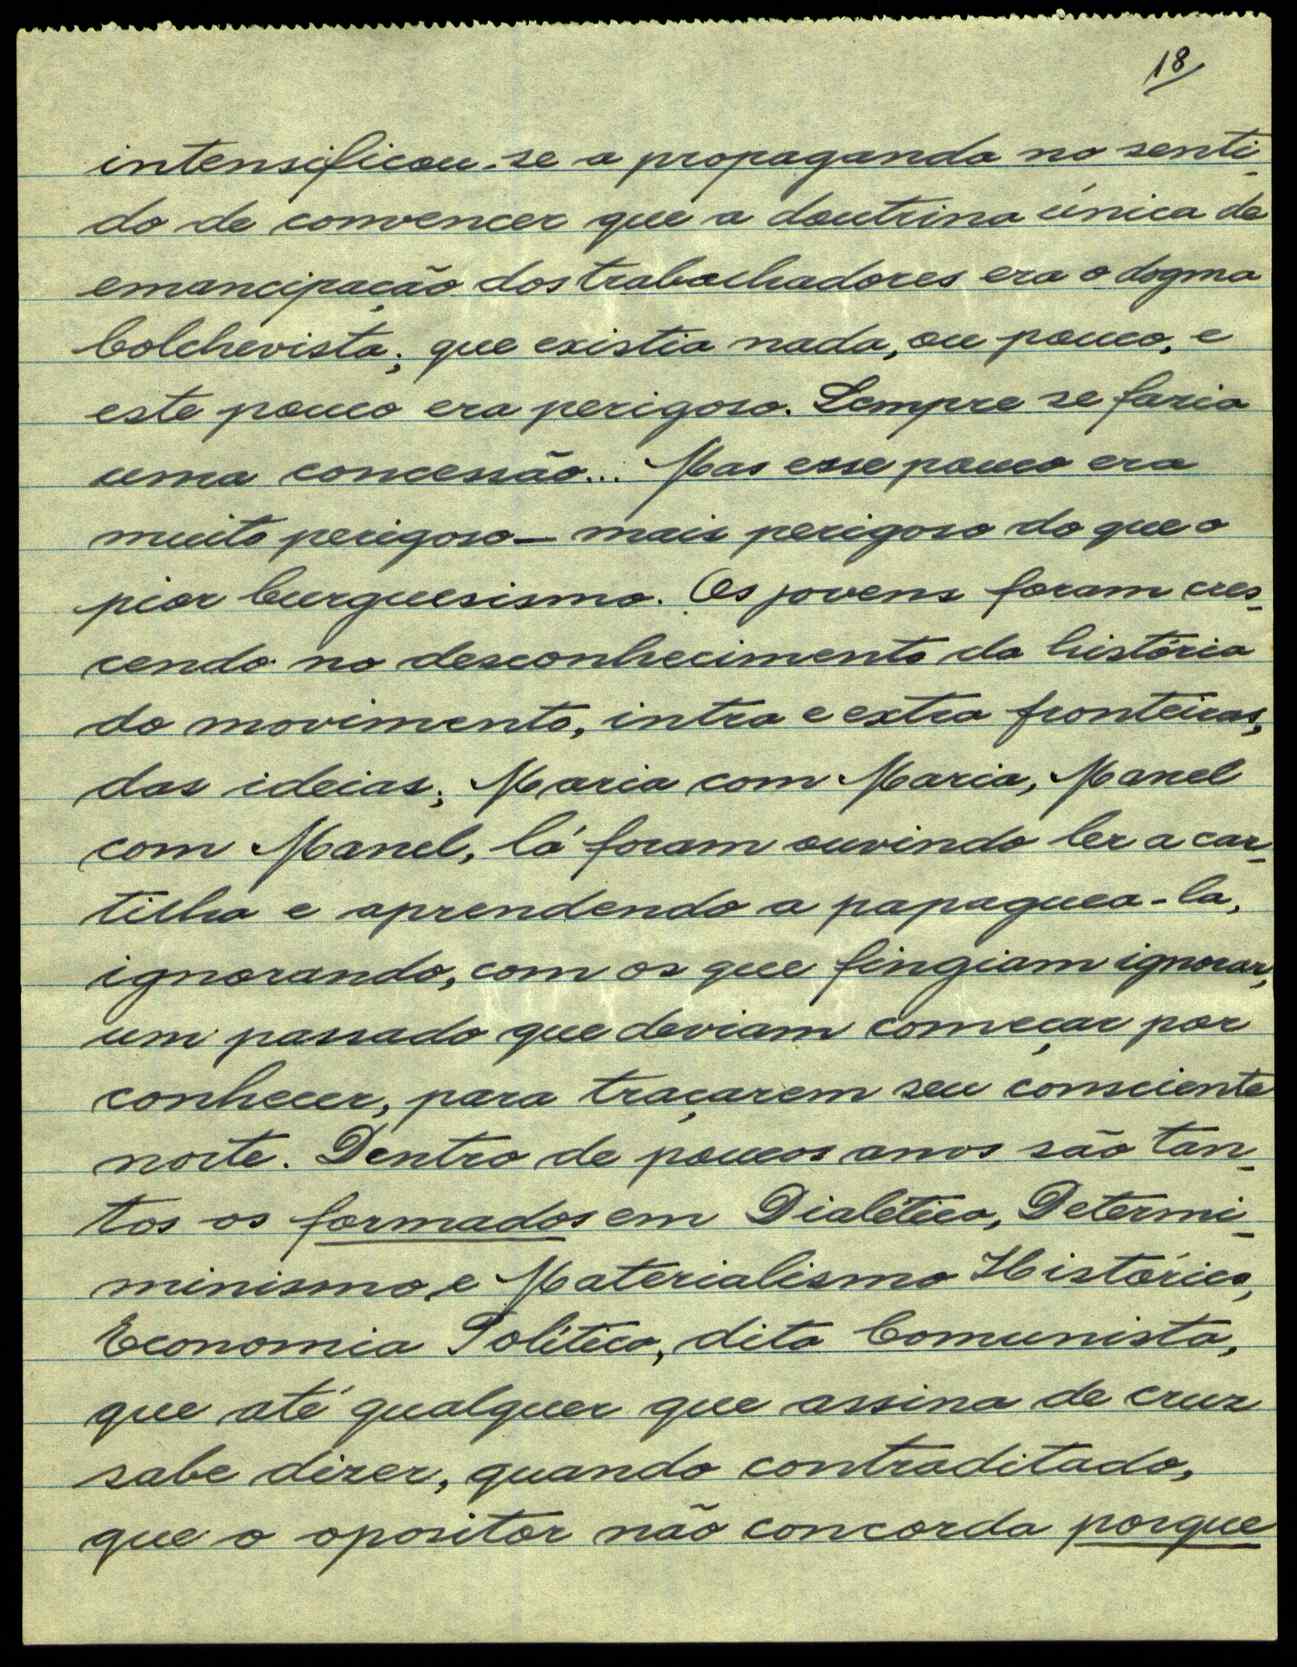 18
intensificou-se a propaganda no senti-
do de convencer que a doutrina única de
emancipação dos trabalhadores era o dogma
bolchevista; que existia nada, ou pouco, e
este pouco era perigoso. Sempre se fazia
uma concessão... Mas esse pouco era
muito perigoso — mais perigoso do que o
pior burguesismo. Os jovens foram cres-
cendo no desconhecimento da história
do movimento, intra e extra fronteiras,
das ideias; Maria com Maria, Manel
com Manel, lá foram ouvindo ler a car-
tilha e aprendendo a papaguea-la,
ignorando, com os que fingiam ignorar,
um passado que deviam começar por
conhecer, para traçarem seu consciente
norte. Dentro de poucos anos são tan-
tos os formados em Dialética, Determi-
minismo e Materialismo Histórico,
Economia Política, dita Comunista,
que até qualquer que assina de cruz
sabe dizer, quando contraditado,
que o opositor não concorda porque